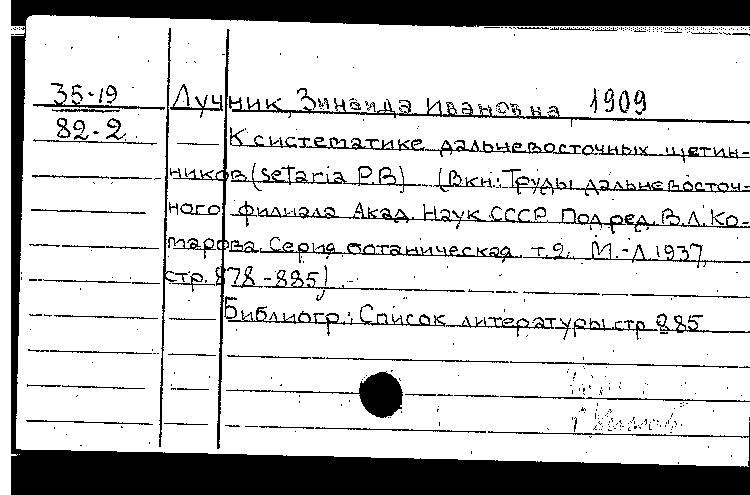 35-19 Лучник, Зинаида Ивановна 1909
82-2 К систематике дальневосточных щетин-
ников (Setaria P.B) (В кн: Труды дальневосточ-
ного филиала Акад. Наук СССР Под ред. В.Л. Ко-
марова. Серия ботаническая. т.2. М.-Л 1937,
стр. 878-885)
Библиогр.: Список литературы стр 885